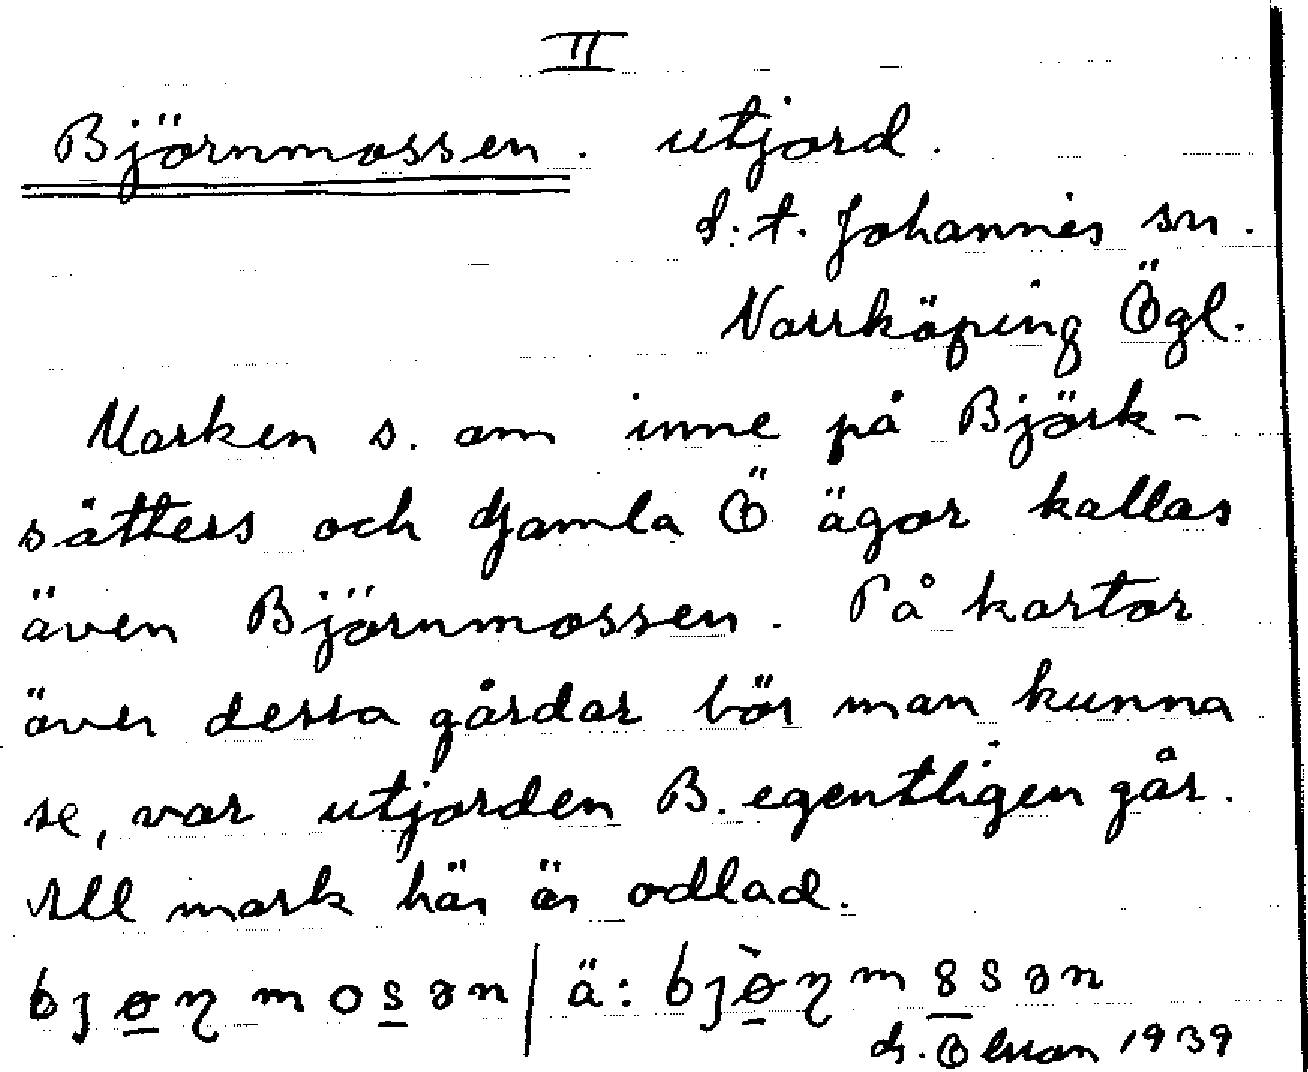 II
Björnmossen. utjord.
S:t. Johannes sn.
Norrköping Ögl.
Marken s. om inne på Björk-
sätters och Gamla Ö ägor kallas
även Björnmossen. På kartor
över dessa gårdar bör man kunna
se, var utjorden B. egentligen går.
All mark här är odlad.
ä:
Olsson 1939